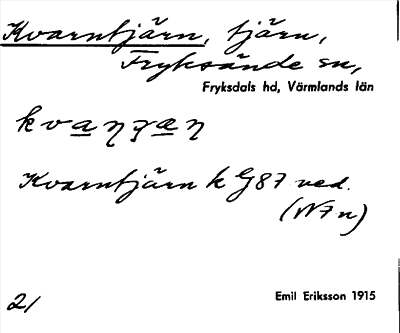 Kvarntjärn, tjärn,
Fryksände sn,
Fryksdals hd, Värmlands län
Kvarntjärn k G87 ved.
(N7n)
21
Emil Eriksson 1915